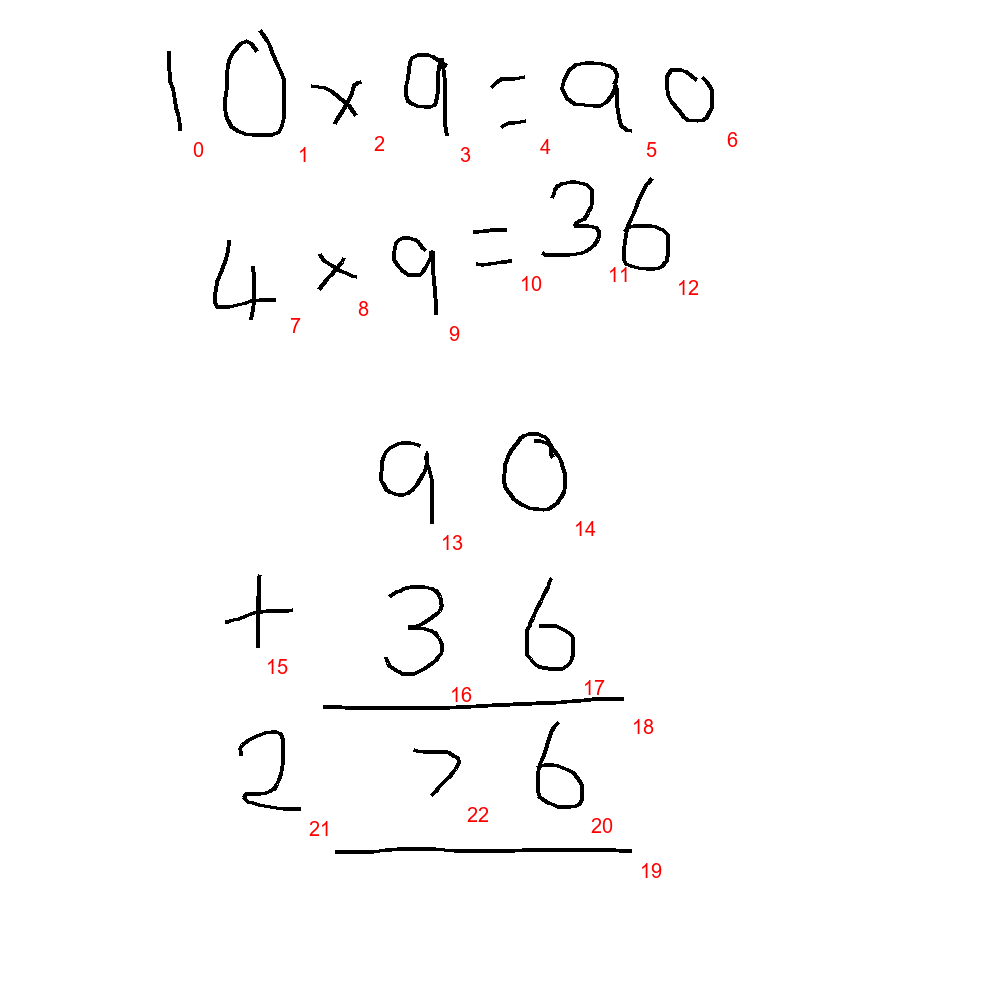 10 × 9 = 90
0 1 2 3 4 5 6
4 × 9 = 36
7 8 9 10 11 12
90
13 14
+ 36
15 16 17 18
276
21 22 20 19